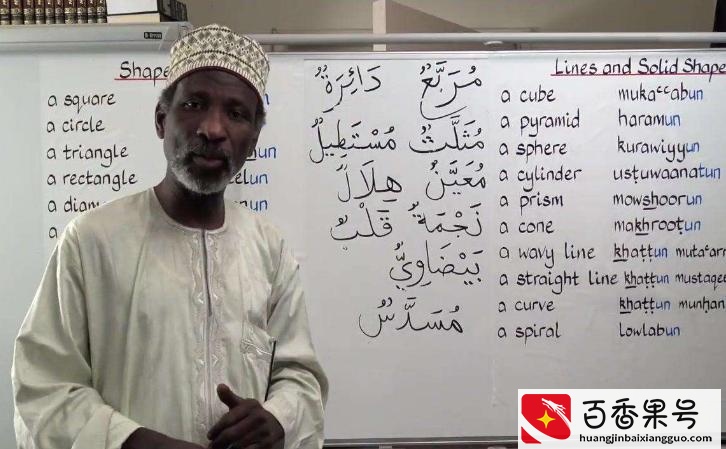 Shape
a square
a circle
a triangle
a rectangle
a
مُرَبَّعٌ دَائِرَةٌ
مُثَلَّثٌ مُسْتَطِيلٌ
مُعَيَّنٌ هِلَالٌ
نَجْمَةٌ قَلْبٌ
بَيْضَاوِيٌّ
مُسَدَّسٌ
Lines and Solid Shape
a cube mukaᶜᶜabun
a pyramid haramun
a sphere kurawiyyun
a cylinder usṭuwaanatun
a prism mowshoorun
a cone makhrooṭun
a wavy line khaṭṭun
a straight line khaṭṭun
a curve khaṭṭun
a spiral Lowlabun
百香果号
huangjinbaixiangguo.com